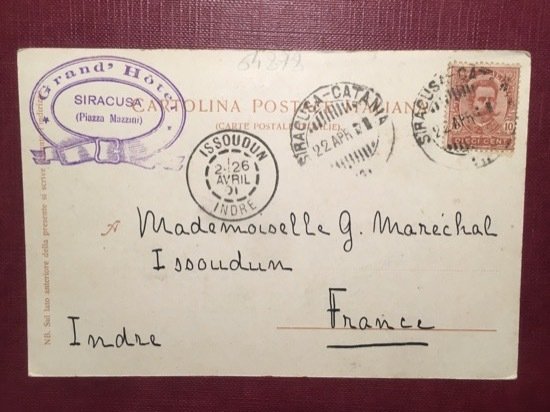 64272
Grand' Hôtel
SIRACUSA
(Piazza Mazzini)
CARTOLINA POSTALE ITALIANA
(CARTE POSTALE ITALIE)
SIRACUSA-CATANIA
22 APR
SIRACUSA-CA
22 APR
10
DIECI CENT
ISSOUDUN
26
AVRIL
01
INDRE
A Mademoiselle G. Maréchal
Issoudun
France
Indre
NB. Sul lato anteriore della presente si scrive